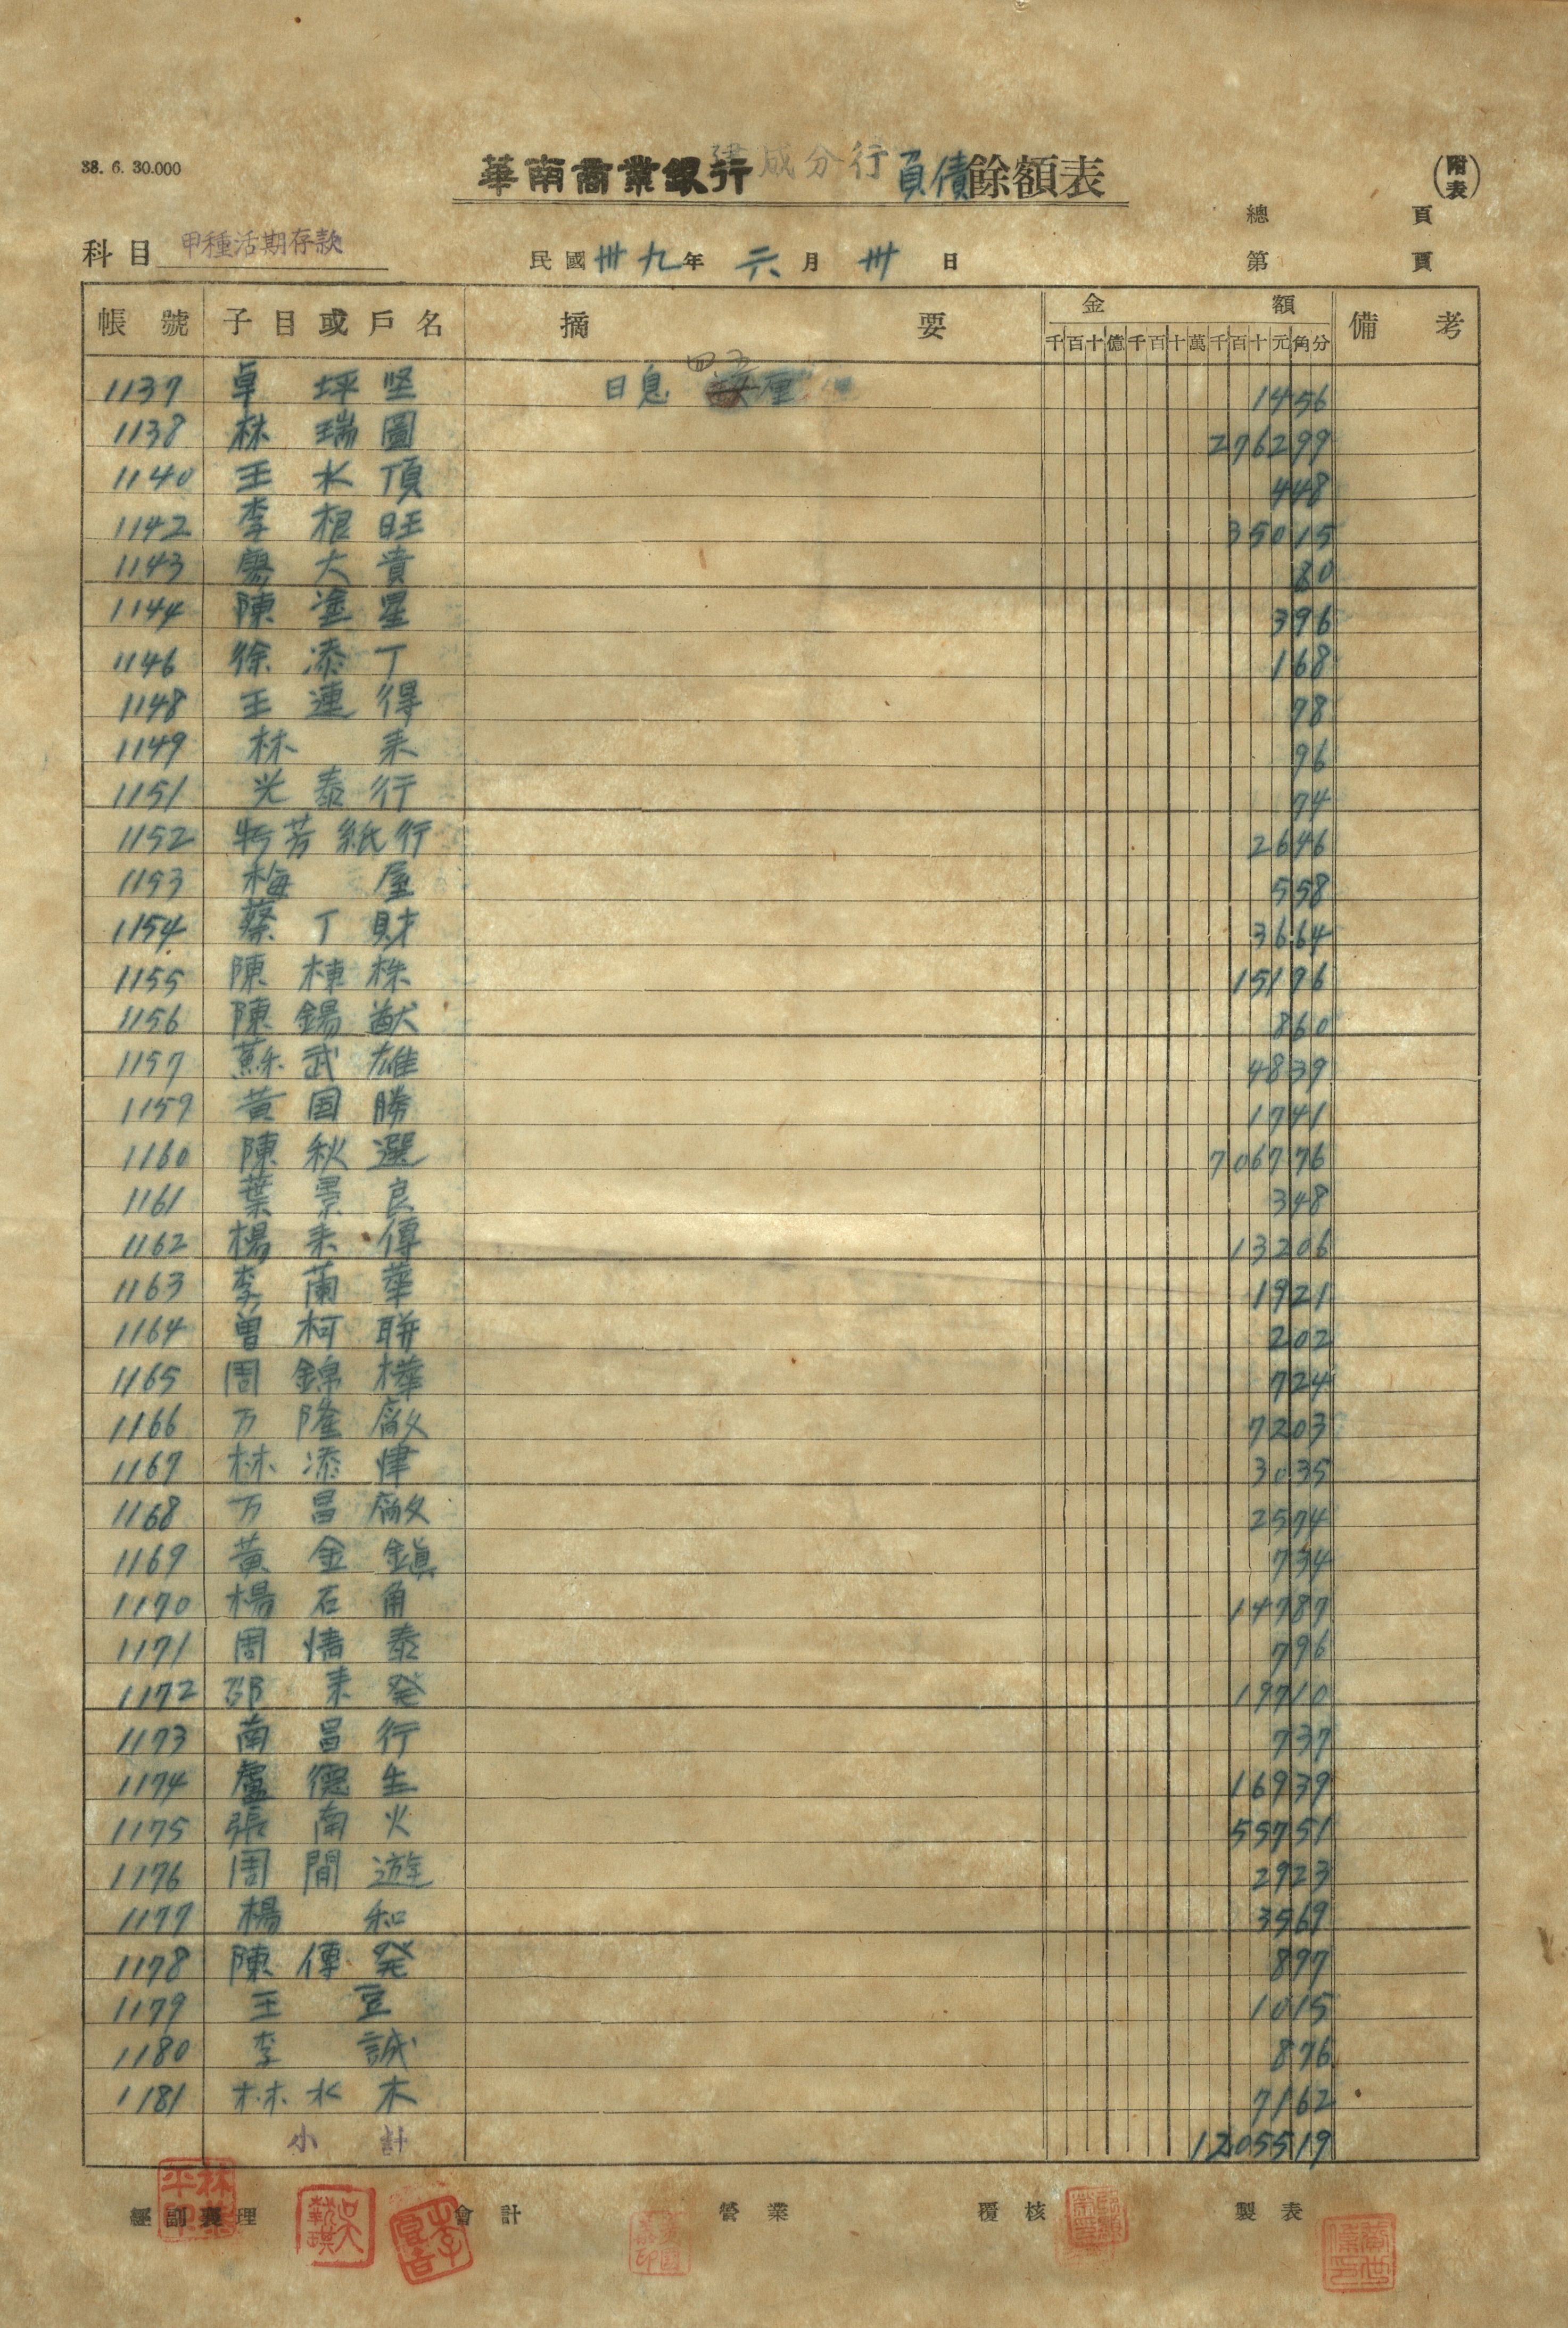 38. 6. 30.000
華南商業銀行 建成分行 負債餘額表
(附表)
總 頁
科目 甲種活期存款 民國卅九年六月卅日 第 頁
帳號 子目或戶名 摘要 金額 備考
千百十億千百十萬千百十元角分
1137 卓坪坚 日息 厘 1456
1138 林瑞圖 276299
1140 王水頂 448
1142 李根旺 35015
1143 廖大貴 80
1144 陳塗星 396
1146 徐添丁 168
1148 王連得 78
1149 林来 96
1151 光泰行 74
1152 芳紙行 2646
1153 梅屋 558
1154 蔡丁財 3664
1155 陳棟株 15196
1156 陳錫猷 860
1157 蘇武雄 4839
1159 黃国勝 1741
1160 陳秋選 706776
1161 葉景良 348
1162 楊来傳 13206
1163 李蘭華 1921
1164 曾柯聯 202
1165 周錦樺 724
1166 万隆廠 7203
1167 林添 3035
1168 万昌廠 2574
1169 黃金鎭 734
1170 楊石角 14787
1171 周清泰 796
1172 邵来発 19710
1173 南昌行 737
1174 盧德生 16939
1175 張南火 55751
1176 周間遊 2923
1177 楊和 3569
1178 陳傳発 897
1179 王豆 1015
1180 李誠 876
1181 林水木 7162
小計 1205519
經副襄理 會計 營業 覆核 製表